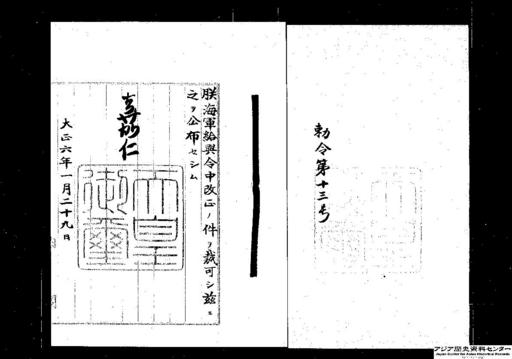 勅令第十三号
朕海軍給與令中改正ノ件ヲ裁可シ茲ニ
之ヲ公布セシム
嘉仁
天皇
御璽
大正六年一月二十九日
アジア歴史資料センター
Japan Center for Asian Historical Records